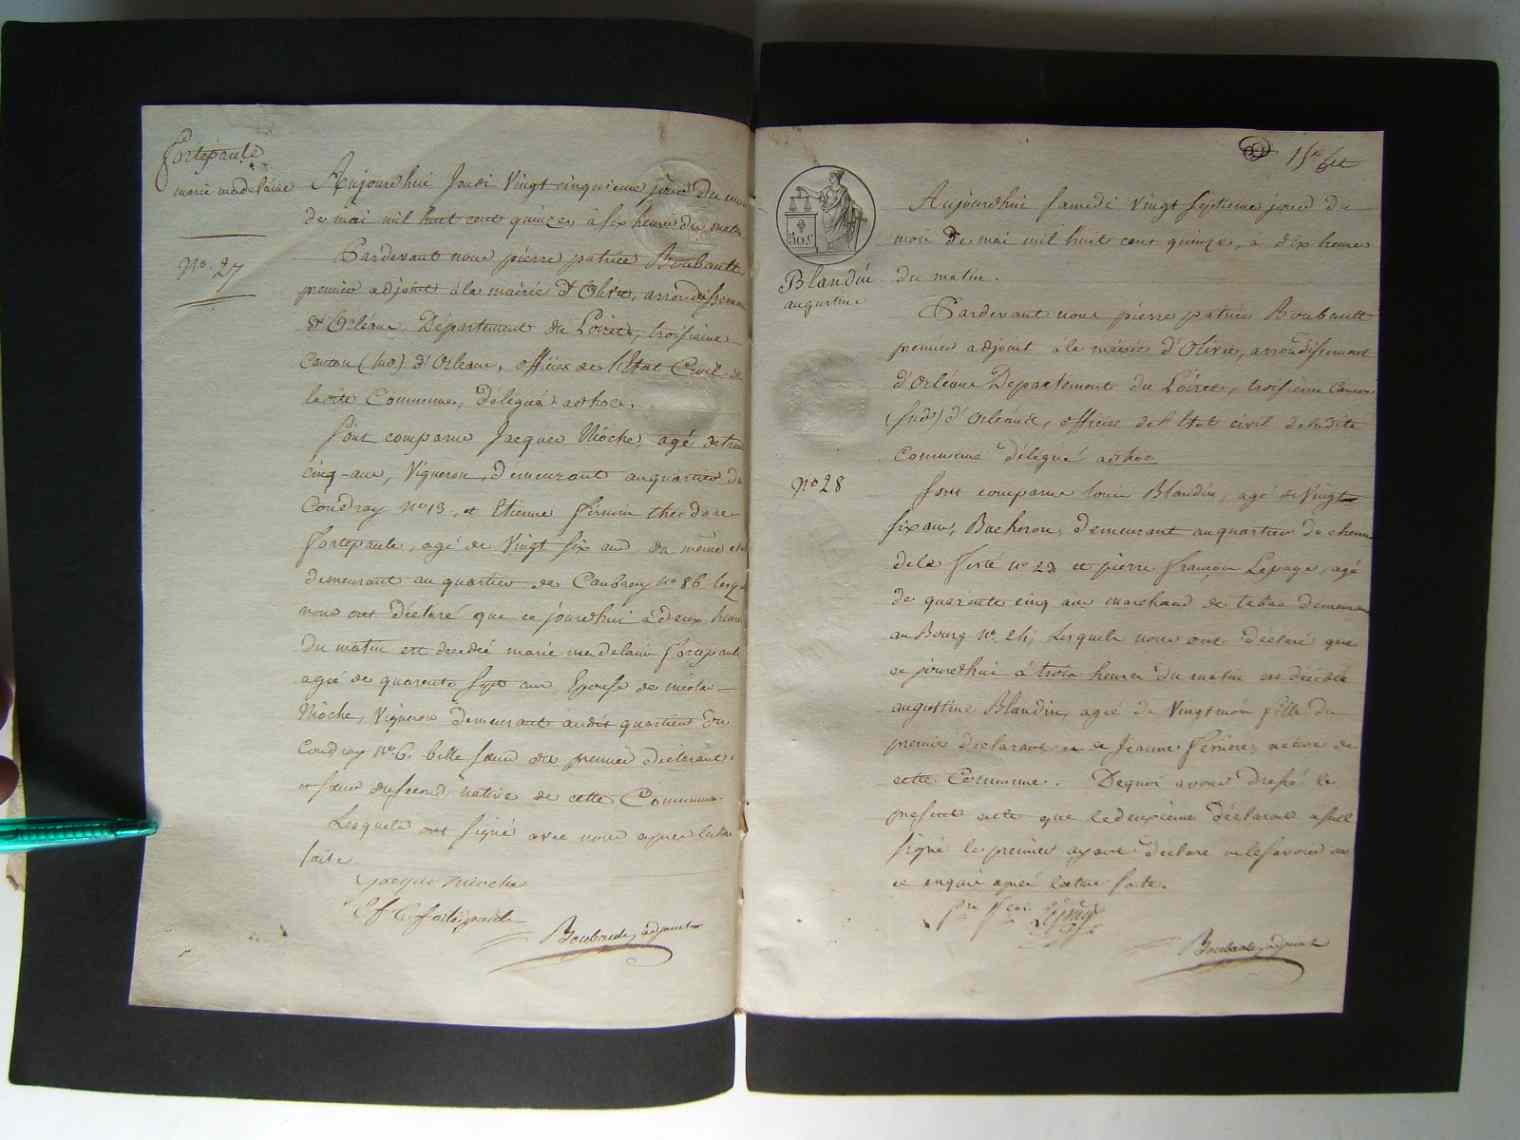 fortepaule
marie madelaine
No. 27
Aujourdhui Jeudi vingt cinquieme jour du mois
de mai mil huit cent quinze, à six heures du matin
Pardevant nous pierre patrice Boubault
premier adjoint à la mairie d'Olivet, arrondissement
d'Orléans, Département du Loiret, troisieme
Canton (Sud) d'Orléans, officier de l'Etat Civil de
la dite Commune, délégué adhoc.
Sont comparus Jacques Nioche, agé de trente
cinq ans, Vigneron, demeurant au quartier du
Coudray No 13, et Etienne firmin theodore
fortepaule, agé de Vingt six ans du même etat
demeurant au quartier de No 86 lesquels
nous ont déclaré que ce jourdhui à deux heures
du matin est decedée marie madelaine fortepaule
agée de quarente sept ans Epouse de nicolas
Nioche, Vigneron demeurant audit quartier du
Coudray No 6. belle soeur du premier déclarant
et soeur du second, native de cette Commune
Lesquels ont signé avec nous apres lecture
faite
jacque nioche
E f t fortepaule
Boubault, adjoint
15e
50 c.
Blandin
augustine
No 28
Aujourdhui Samedi vingt septieme jour du
mois de mai mil huit cent quinze, à dix heures
du matin.
Pardevant nous pierre patrice Boubault
premier adjoint à la mairie d'Olivet, arrondissement
d'Orléans Département du Loiret, troisieme Canton
(Sud) d'Orléans, officier de l'Etat civil de la dite
Commune délégué adhoc
Sont comparus louis Blandin, agé de Vingt
six ans, Bucheron, demeurant au quartier du chemin
de la ferté No 23 et pierre françois Lepage, agé
de quarente cinq ans marchand de tabac demeurant
au Bourg No 24, Lesquels nous ont déclaré que
ce jourdhui à trois heures du matin est décédée
augustine Blandin, agée de Vingt mois fille du
premier déclarant et de Jeanne ferrière, native de
cette Commune. Dequoi avons dressé le
present acte que le deuxième déclarant a seul
signé le premier ayant déclaré ne le savoir de
ce enquis après lecture faite.
pre fçois Lepage
Boubault, adjoint